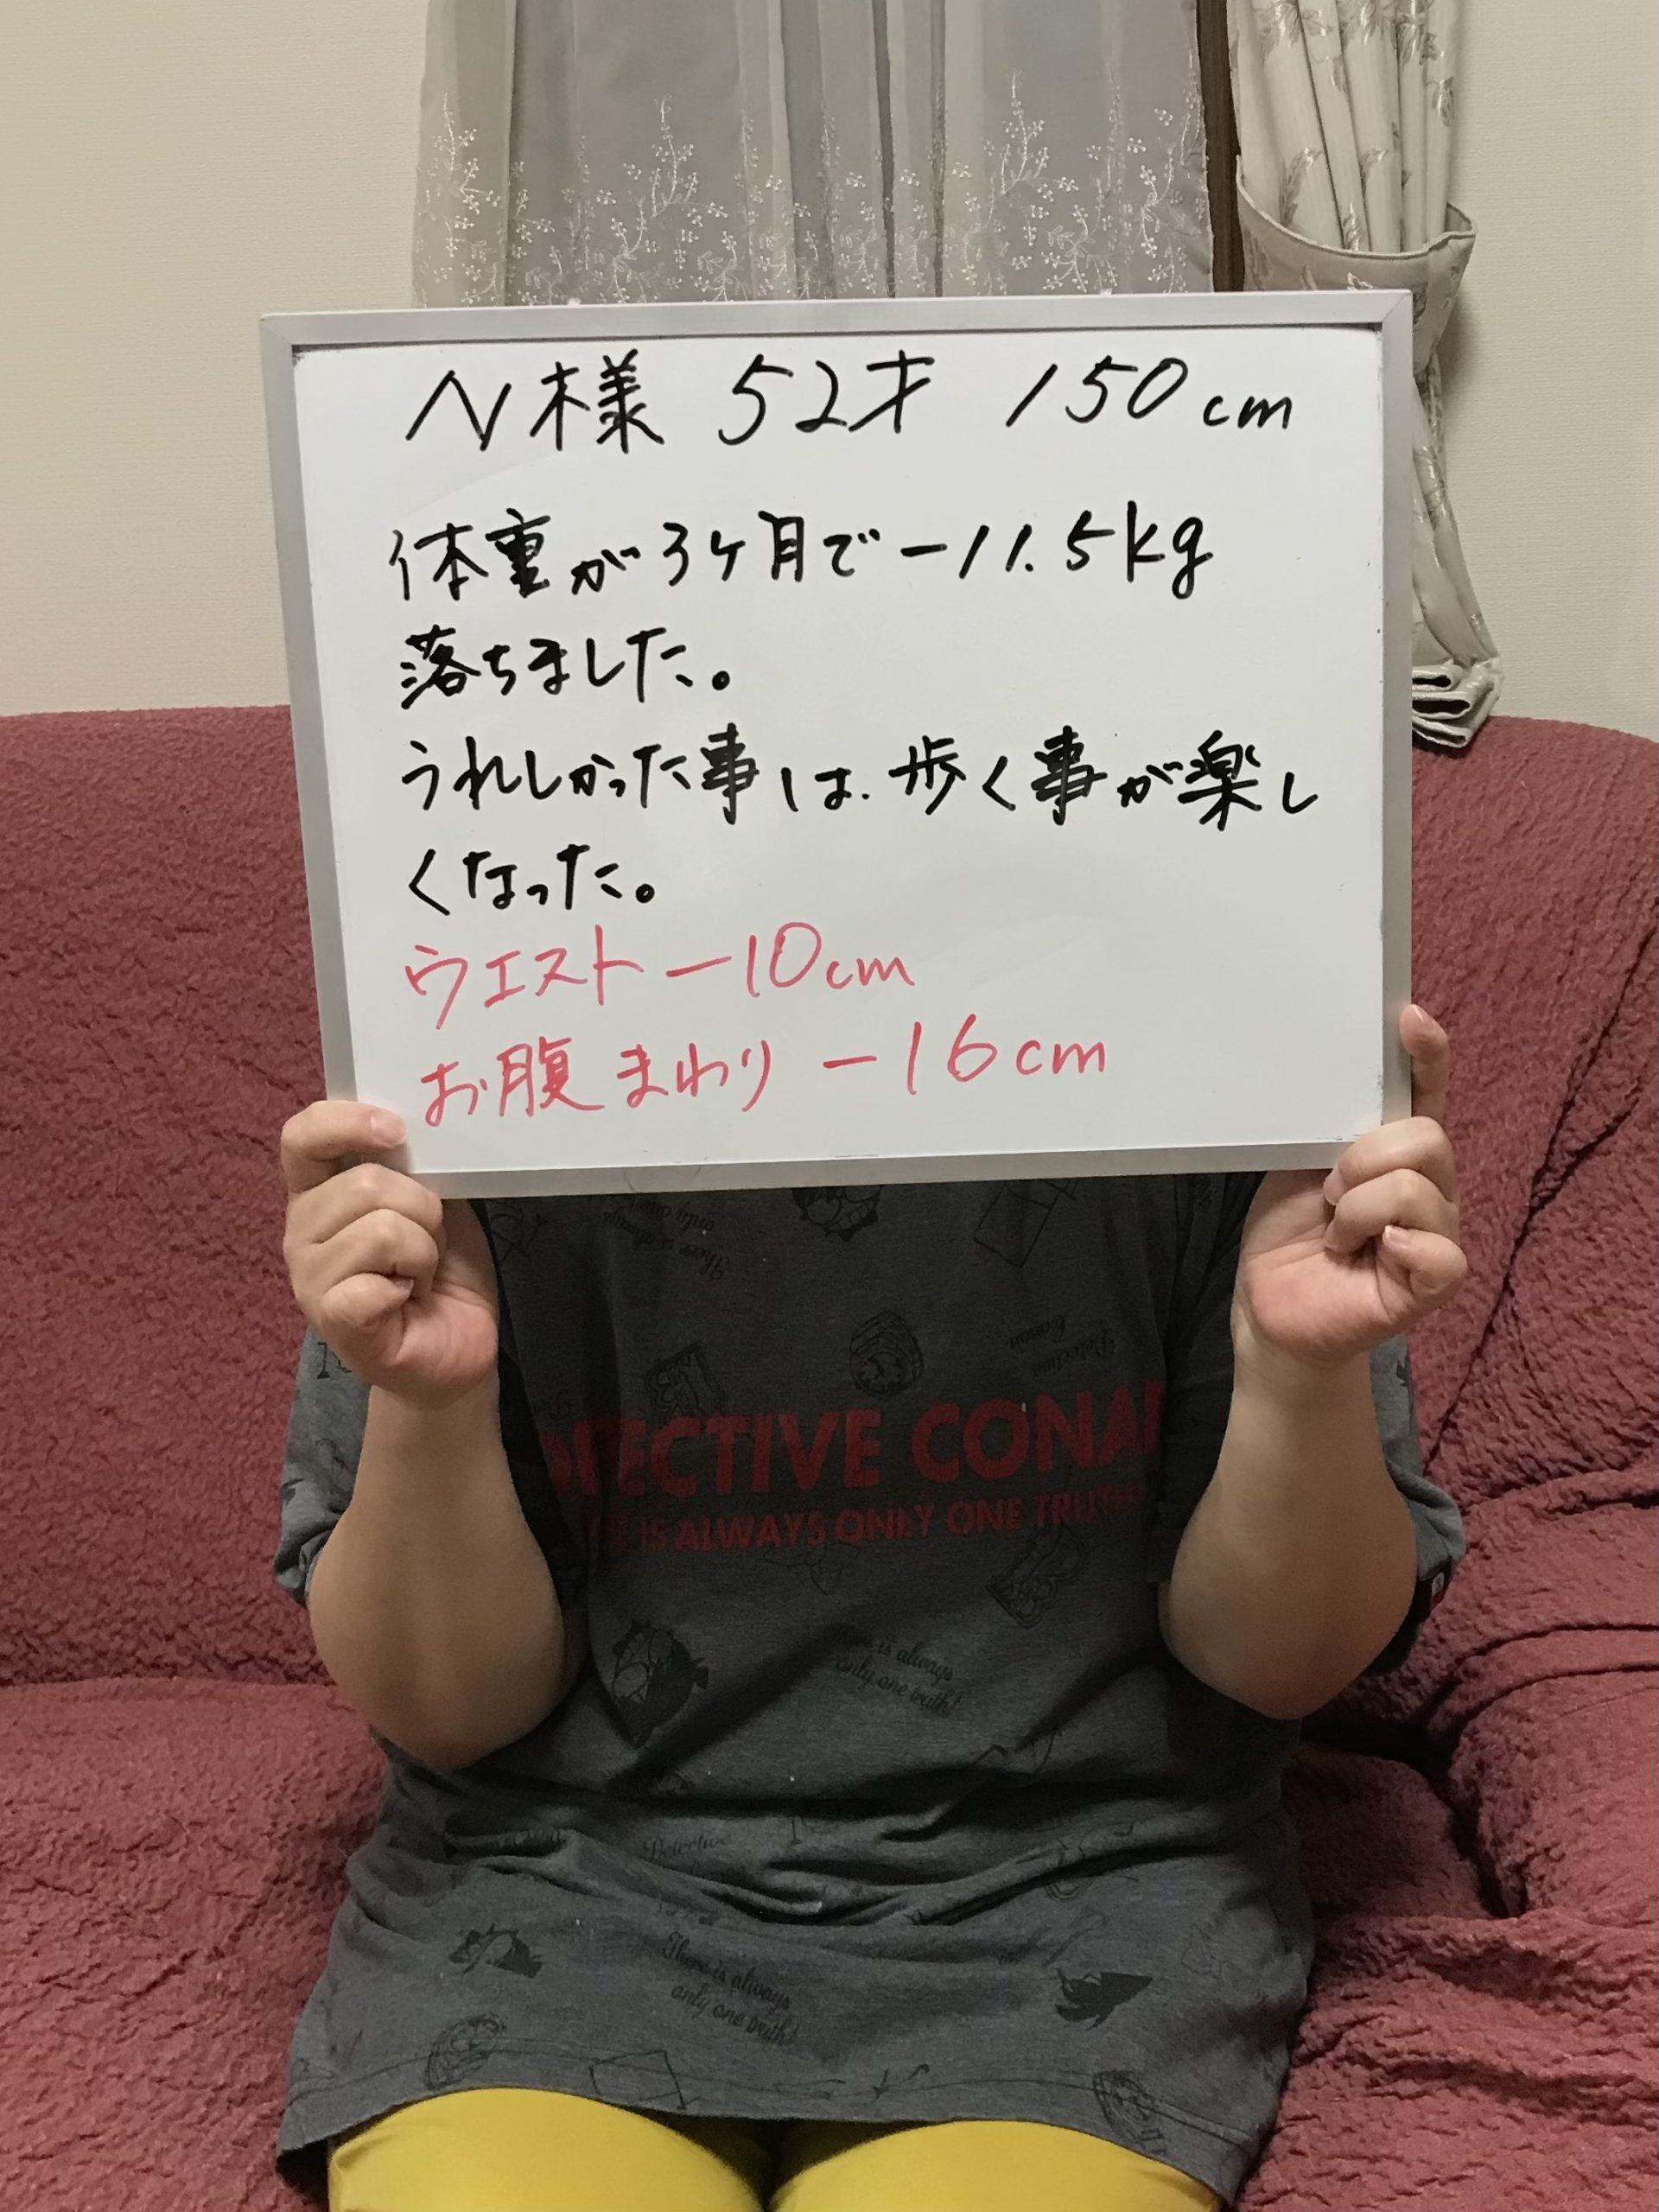 N様 52才 150cm
体重が3ケ月で-11.5kg
落ちました。
うれしかった事は、歩く事が楽し
くなった。
ウエスト -10cm
お腹まわり -16cm
There is always
only one truth!
Detective
Conan
ECTIVE CONA
IS ALWAYS ONLY ONE TRUTH
is always
only one truth!
Detective
There is always
only one truth!